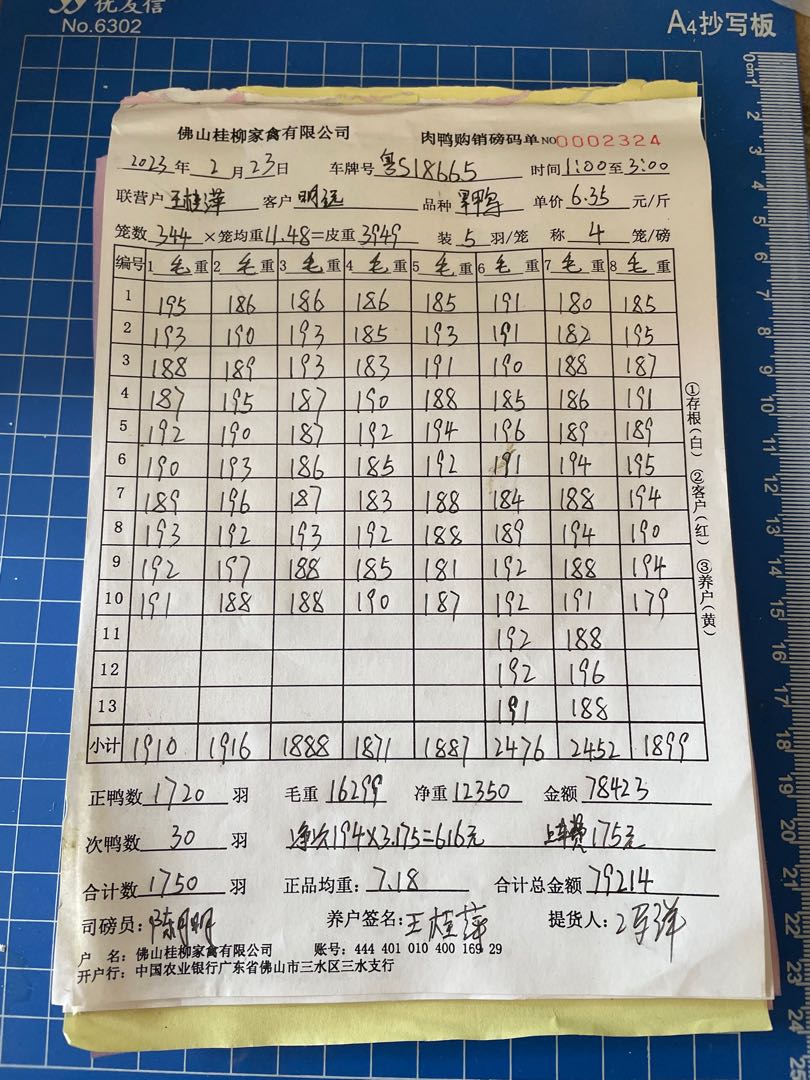 优友信
No.6302
A4抄写板
佛山桂柳家禽有限公司 肉鸭购销磅码单 NO 0002324
2023年2月23日 车牌号 粤S18665 时间1:00至3:00
联营户 王桂萍 客户 明远 品种 单价 6.35 元/斤
笼数 344 ×笼均重11.48=皮重3949 装 5 羽/笼 称 4 笼/磅
编号 1 毛 重 2 毛 重 3 毛 重 4 毛 重 5 毛 重 6 毛 重 7 毛 重 8 毛 重
1 195 186 186 186 185 191 180 185
2 193 190 193 185 193 191 182 195
3 188 189 193 183 191 190 188 187
4 187 195 187 190 188 185 186 191
5 192 190 187 192 194 196 189 189
6 190 193 186 185 192 191 194 195
7 189 196 187 183 188 184 188 194
8 193 192 193 192 188 189 194 190
9 192 197 188 185 181 192 188 194
10 191 188 188 190 187 192 191 179
11 192 188
12 192 196
13 191 188
小计 1910 1916 1888 1871 1887 2476 2452 1899
①存根(白) ②客户(红) ③养户(黄)
正鸭数 1720 羽 毛重 16299 净重 12350 金额 78423
次鸭数 30 羽 净次194×3.175=616元 上车费175元
合计数 1750 羽 正品均重: 7.18 合计总金额 79214
司磅员: 养户签名: 王桂萍 提货人:
户 名: 佛山桂柳家禽有限公司 账号: 444 401 010 400 169 29
开户行: 中国农业银行广东省佛山市三水区三水支行
0cm 1 2 3 4 5 6 7 8 9 10 11 12 13 14 15 16 17 18 19 20 21 22 23 24 25